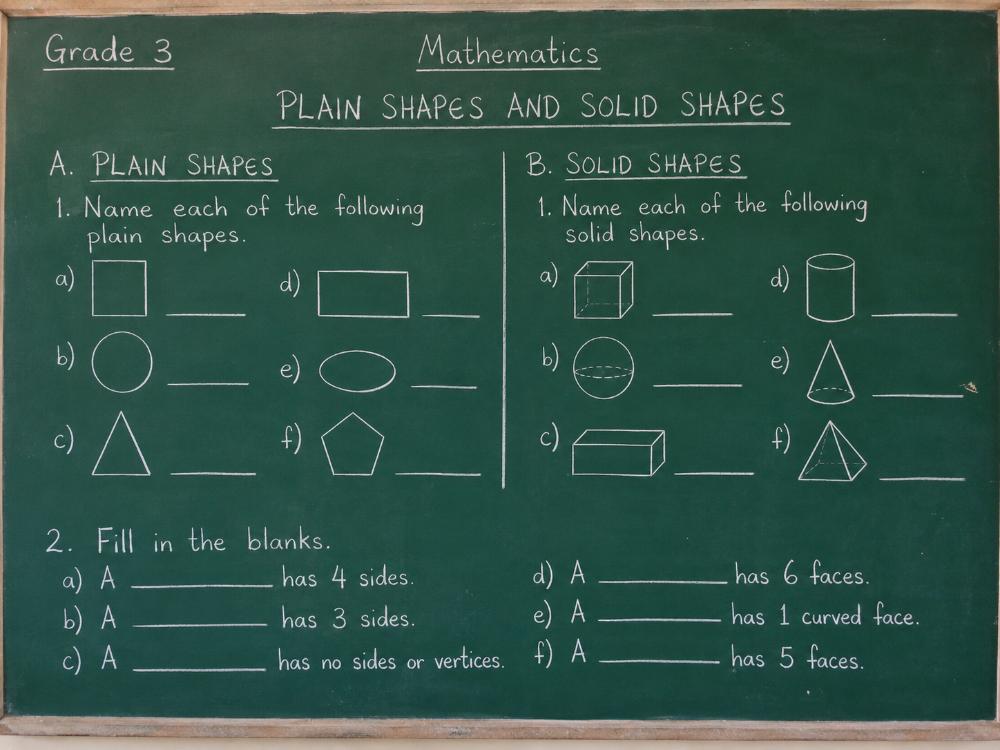 Grade 3
Mathematics
PLAIN SHAPES AND SOLID SHAPES
A. PLAIN SHAPES
1. Name each of the following
plain shapes.
a) ________
d) ________
b) ________
e) ________
c) ________
f) ________
B. SOLID SHAPES
1. Name each of the following
solid shapes.
a) ________
d) ________
b) ________
e) ________
c) ________
f) ________
2. Fill in the blanks.
a) A ________ has 4 sides.
b) A ________ has 3 sides.
c) A ________ has no sides or vertices.
d) A ________ has 6 faces.
e) A ________ has 1 curved face.
f) A ________ has 5 faces.